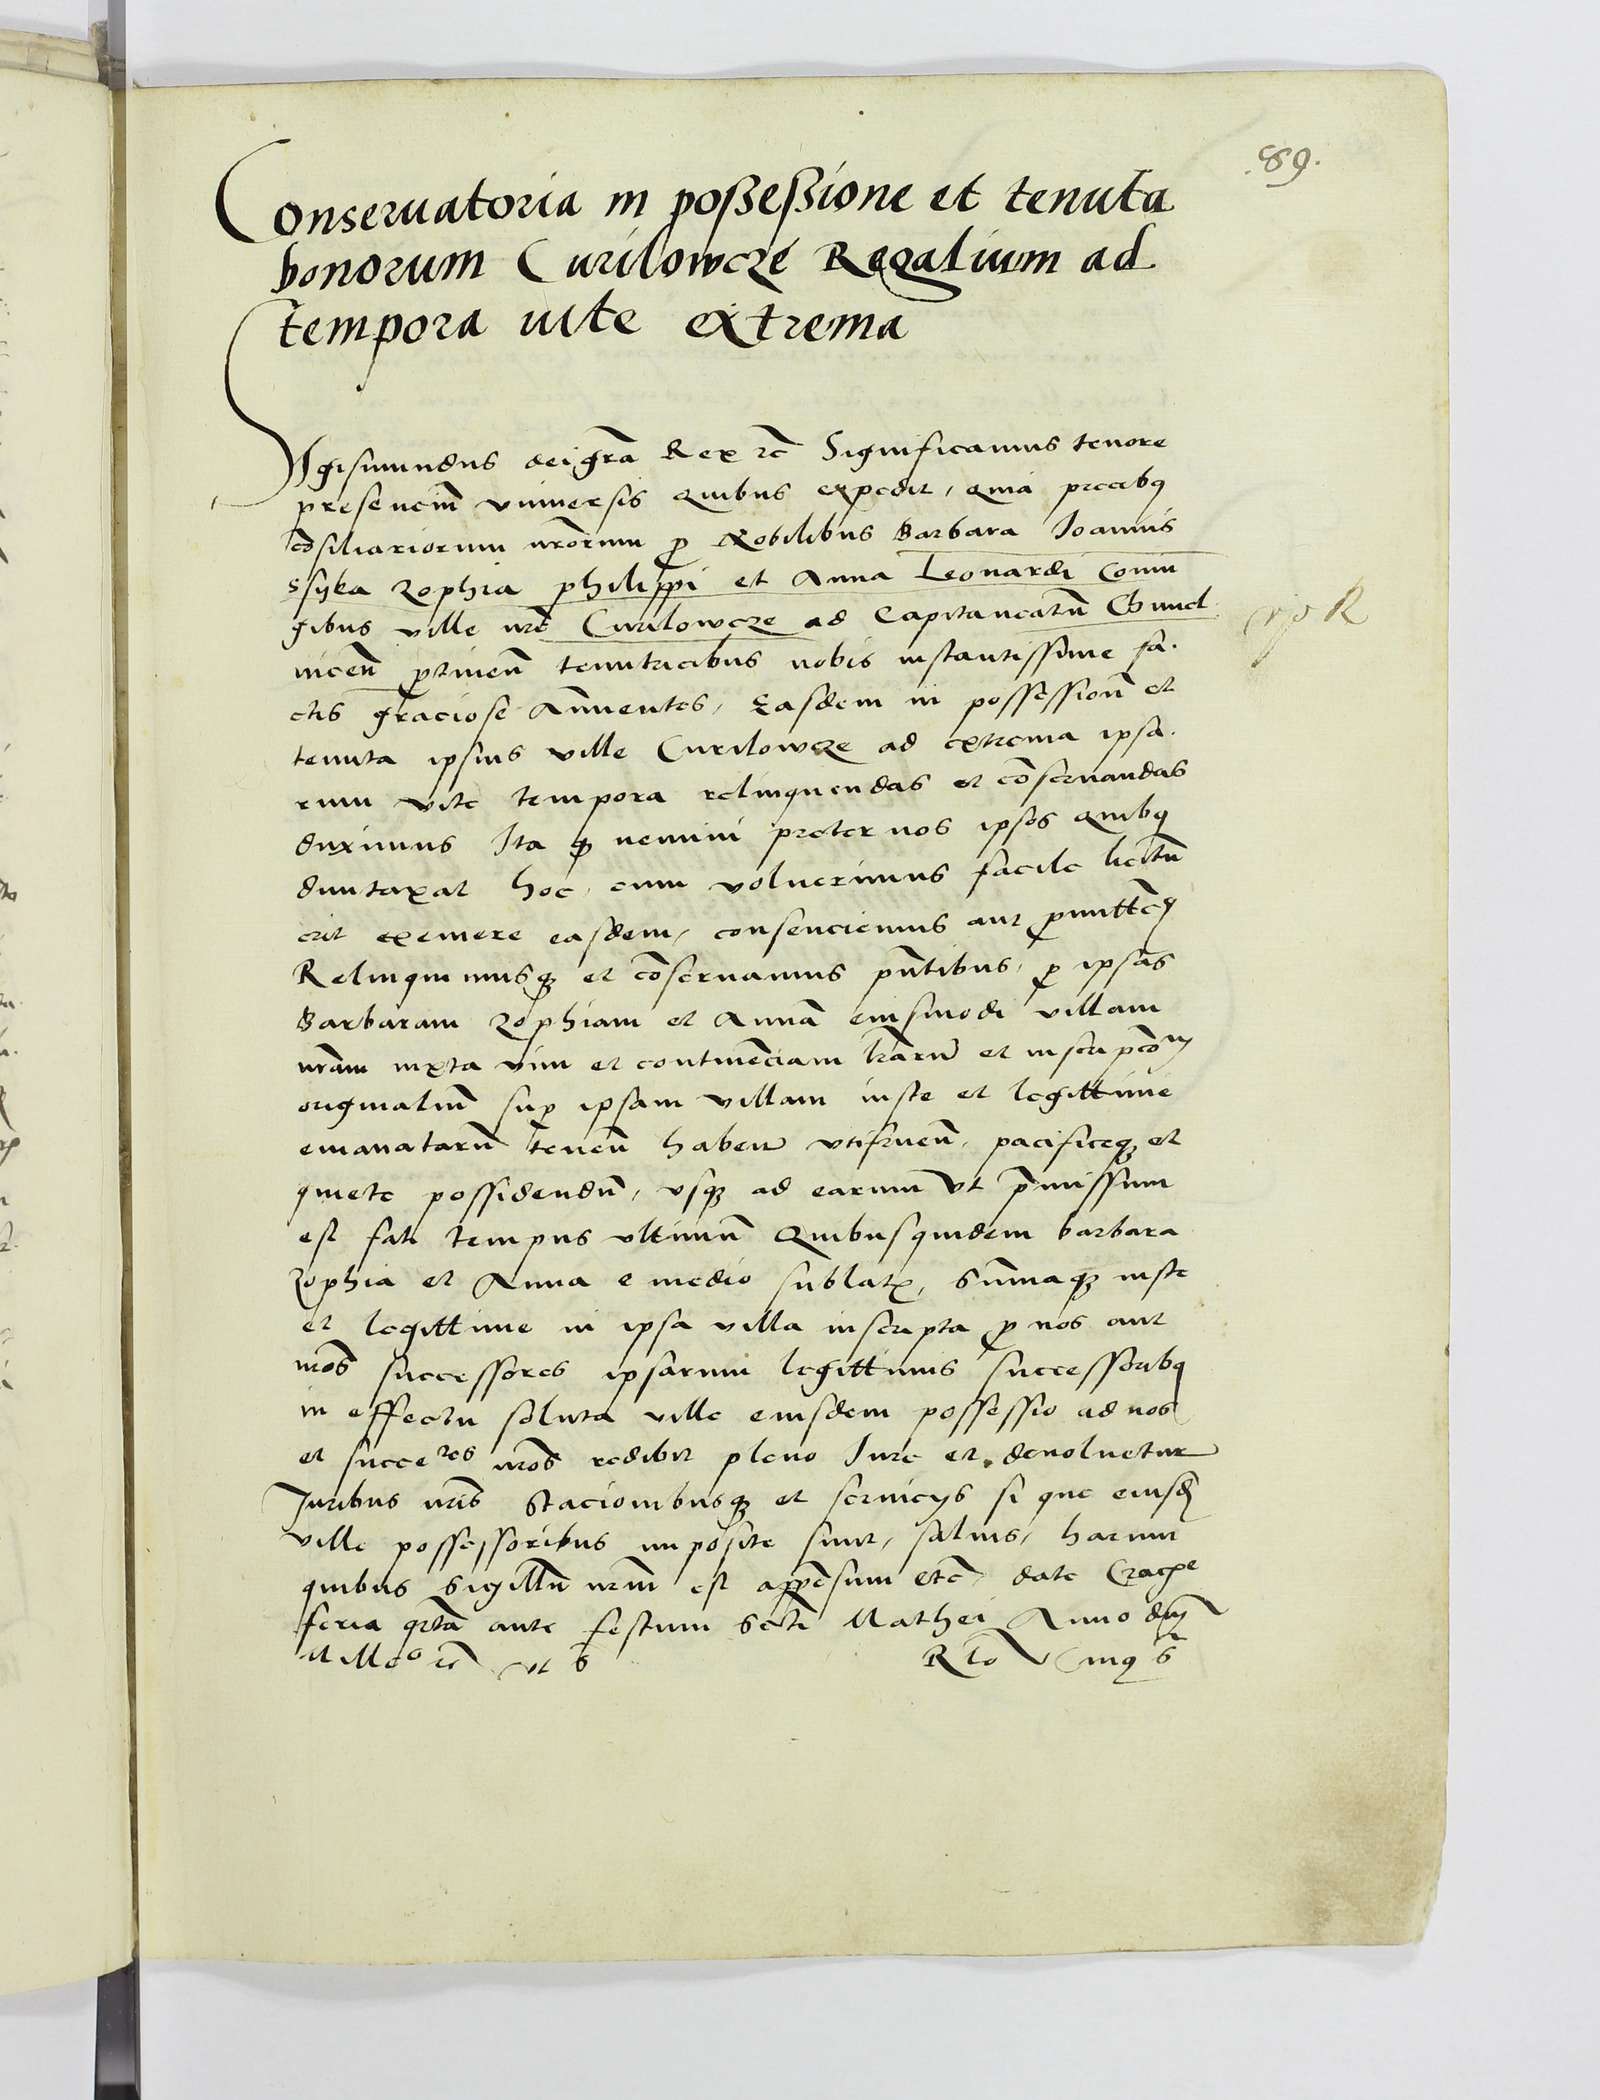 89.
Conseruatoria in poßeßione et tenuta
bonorum Curilowcze Regalium ad
tempora uite extrema
Sigismundus dei grã Rex rc̃ Significamus tenore
presenciũ vniuersis quibus expedit, quia precibꝗ
cõsiliariorum nrõrum ꝓ Nobilibus Barbara Ioannis
Ssyka Zophia philippi et Anna Leonardi Coniu
gibus ville nrẽ Curilowcze ad Capitaneatũ Chmel
nicen̄ ꝑtinen̄ tenutricibus nobis instantissime fa.
ctis graciose Annuentes, Easdem in possessionẽ et
tenuta ipsius ville Curilowcze ad extrema ipsa.
rum vite tempora relinquendas et cõseruandas
duximus Ita ꝙ nemini preter nos ipsos quibꝗ
duntaxat hoc, cum voluerimus facile licitũ
erit eximere easdem, consenciemus aut ꝑmittemꝗ
Relinquimusqȝ et cõseruamus pñtibus, ꝑ ipsas
Barbaram Zophiam et Annã eiusmodi villam
nrãm iuxta vim et continẽciam lrãrũ et inscripcõm
originaliũ suꝑ ipsam villam iuste et legittime
emanatarũ tenen̄ haben̄ vtifruen̄, pacificeqȝ et
quiete possidendũ, vsqȝ ad earum vt p̃missum
est fati tempus vltimũ Quibusquidem barbara
Zophia et Anna e medio sublatꝭ, Sũmaqȝ iuste
et legittime in ipsa villa inscripta ꝑ nos aut
nrõs successores ipsarum legittimis successoribꝗ
in effectu soluta ville eiusdem possessio ad nos
et succeres nrõs redibit pleno Iure et deuoluetur
Iuribus nrĩs Stacionibusqȝ et seruicys si que eiusd̃
ville possessoribus imposite sunt, saluis, harum
quibus Sigillũ nrũm est appẽsum etc̃, date Crac̃e
feria qrtã ante festum Scti Mathei Anno dnĩ
Milleo rc̃ vt S
Rlo V Cuiꝗ S